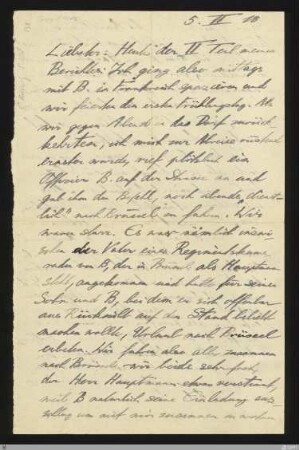 5. III 18
Liebster: Heute der II Teil meines
Berichts: Ich ging also mittags
mit B. in Frankreich spazieren und
wir feierten den ersten Frühlingstag. Als
wir gegen Abend in das Dorf zurück
kehrten, ich mich zur Abreise rüsten
wurde, rief plötzlich ein
Offizier B. auf der Strasse an und
gab ihm den Befehl, noch abends "dienst-
lich" nach Brüssel zu fahren. Wir
waren starr. Es war nämlich
der Vater eines Regimentskame
raden von B, der in Brüssel als Hauptmann
angekommen und hatte für seinen
Sohn und B, bei dem er sich offenbar
auf den Stand beliebt
machen wollte, Urlaub nach Brüssel
erbeten. Wir fuhren also alle zusammen
nach Brüssel, wir beide sehr froh,
der Herr Hauptmann etwas verstimmt,
weil B natürlich seine Einladung aus
schlug um mit mir zusammen zu wohnen